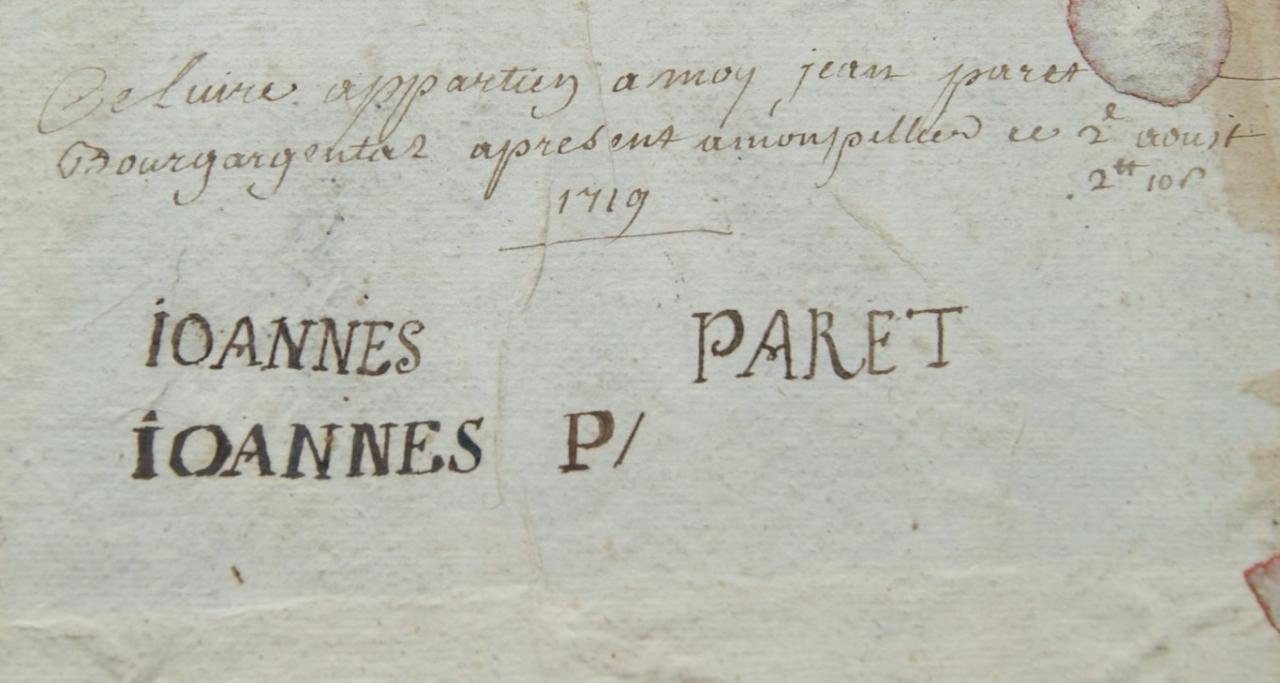 Celuire appartien a moy jean paret
Bourgargental apresent amonspellier ce 2e aoust
2tt 10s
1719
IOANNES PARET
IOANNES P/